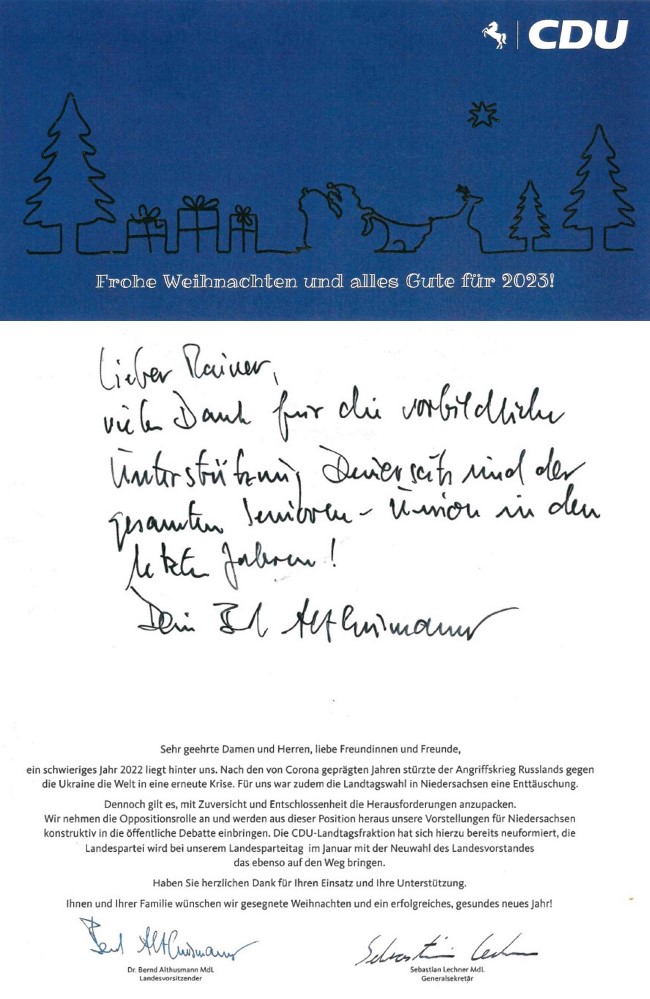 CDU
Frohe Weihnachten und alles Gute für 2023!
Lieber Rainer,
vielen Dank für die vorbildliche
Unterstützung Deinerseits und der
gesamten Senioren-Union in den
letzten Jahren!
Dein Bernd Althusmann
Sehr geehrte Damen und Herren, liebe Freundinnen und Freunde,
ein schwieriges Jahr 2022 liegt hinter uns. Nach den von Corona geprägten Jahren stürzte der Angriffskrieg Russlands gegen
die Ukraine die Welt in eine erneute Krise. Für uns war zudem die Landtagswahl in Niedersachsen eine Enttäuschung.
Dennoch gilt es, mit Zuversicht und Entschlossenheit die Herausforderungen anzupacken.
Wir nehmen die Oppositionsrolle an und werden aus dieser Position heraus unsere Vorstellungen für Niedersachsen
konstruktiv in die öffentliche Debatte einbringen. Die CDU-Landtagsfraktion hat sich hierzu bereits neuformiert, die
Landespartei wird bei unserem Landesparteitag im Januar mit der Neuwahl des Landesvorstandes
das ebenso auf den Weg bringen.
Haben Sie herzlichen Dank für Ihren Einsatz und Ihre Unterstützung.
Ihnen und Ihrer Familie wünschen wir gesegnete Weihnachten und ein erfolgreiches, gesundes neues Jahr!
Bernd Althusmann Sebastian Lechner
Dr. Bernd Althusmann MdL Sebastian Lechner MdL
Landesvorsitzender Generalsekretär